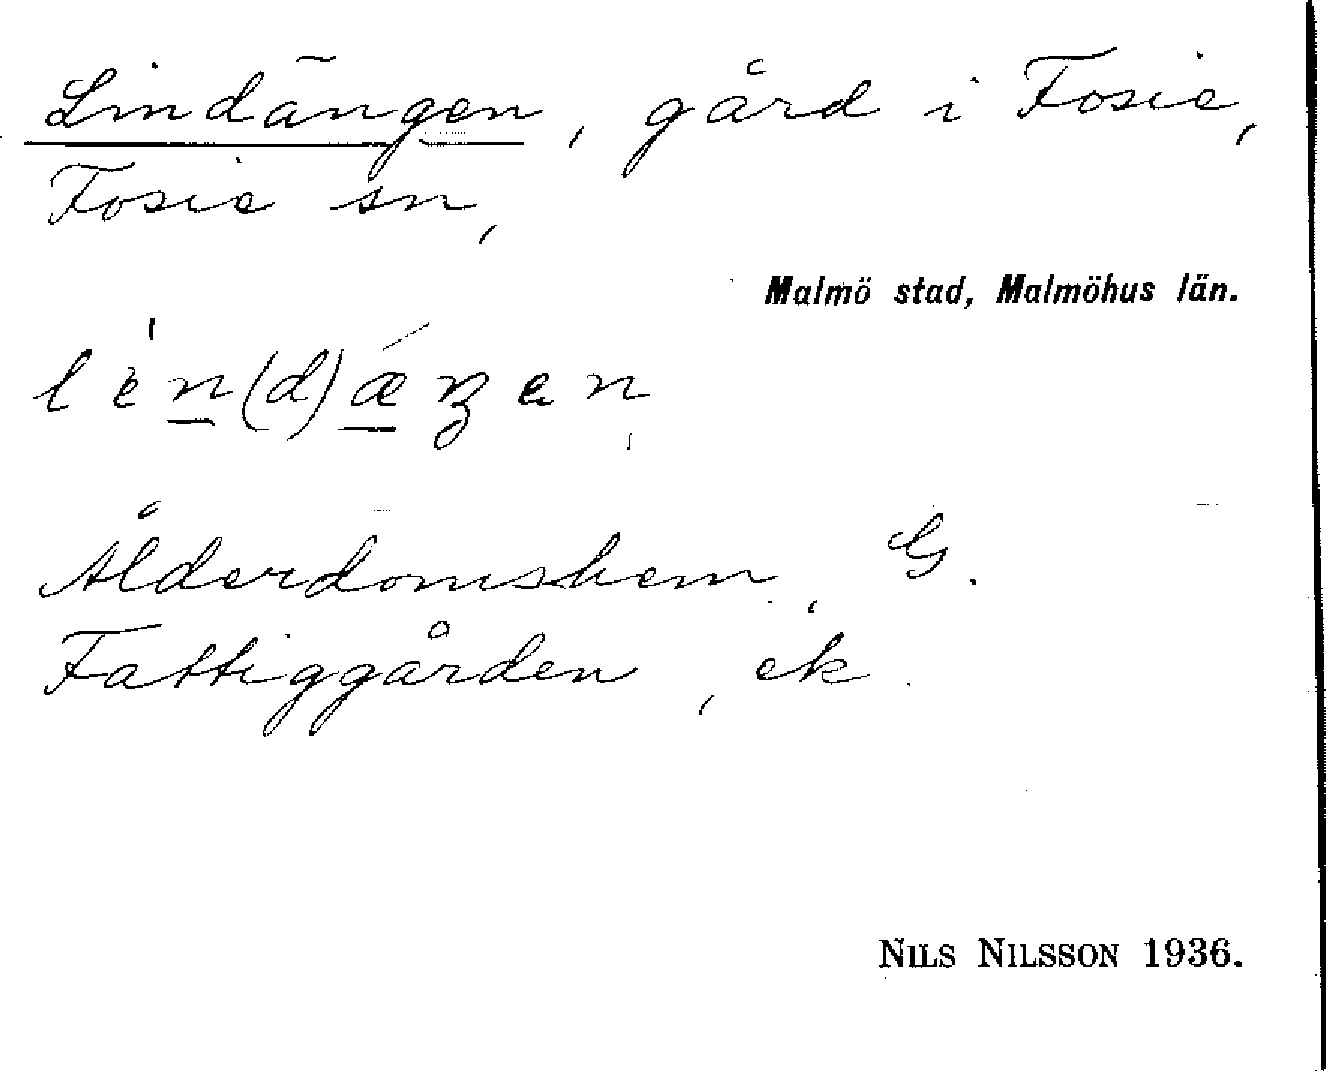 Lindängen, gård i Fosie,
Fosie sn,
Malmö stad, Malmöhus län.
lèn(d)ǽŋen
Ålderdomshem, G.
Fattiggården, ek.
NILS NILSSON 1936.